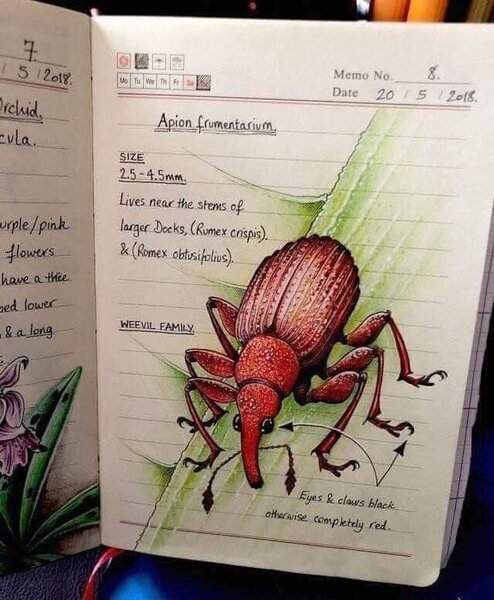 7.
/ 5 / 2018.
Orchid,
cula.
urple/pink
flowers
have a three
bed lower
& a long
Mo Tu We Th Fr Sa
Memo No. 8.
Date 20 / 5 / 2018.
Apion frumentarium.
SIZE
2.5-4.5mm.
Lives near the stems of
larger Docks, (Rumex crispis).
& (Romex obtusifolius).
WEEVIL FAMILY.
Eyes & claws black
otherwise completely red.